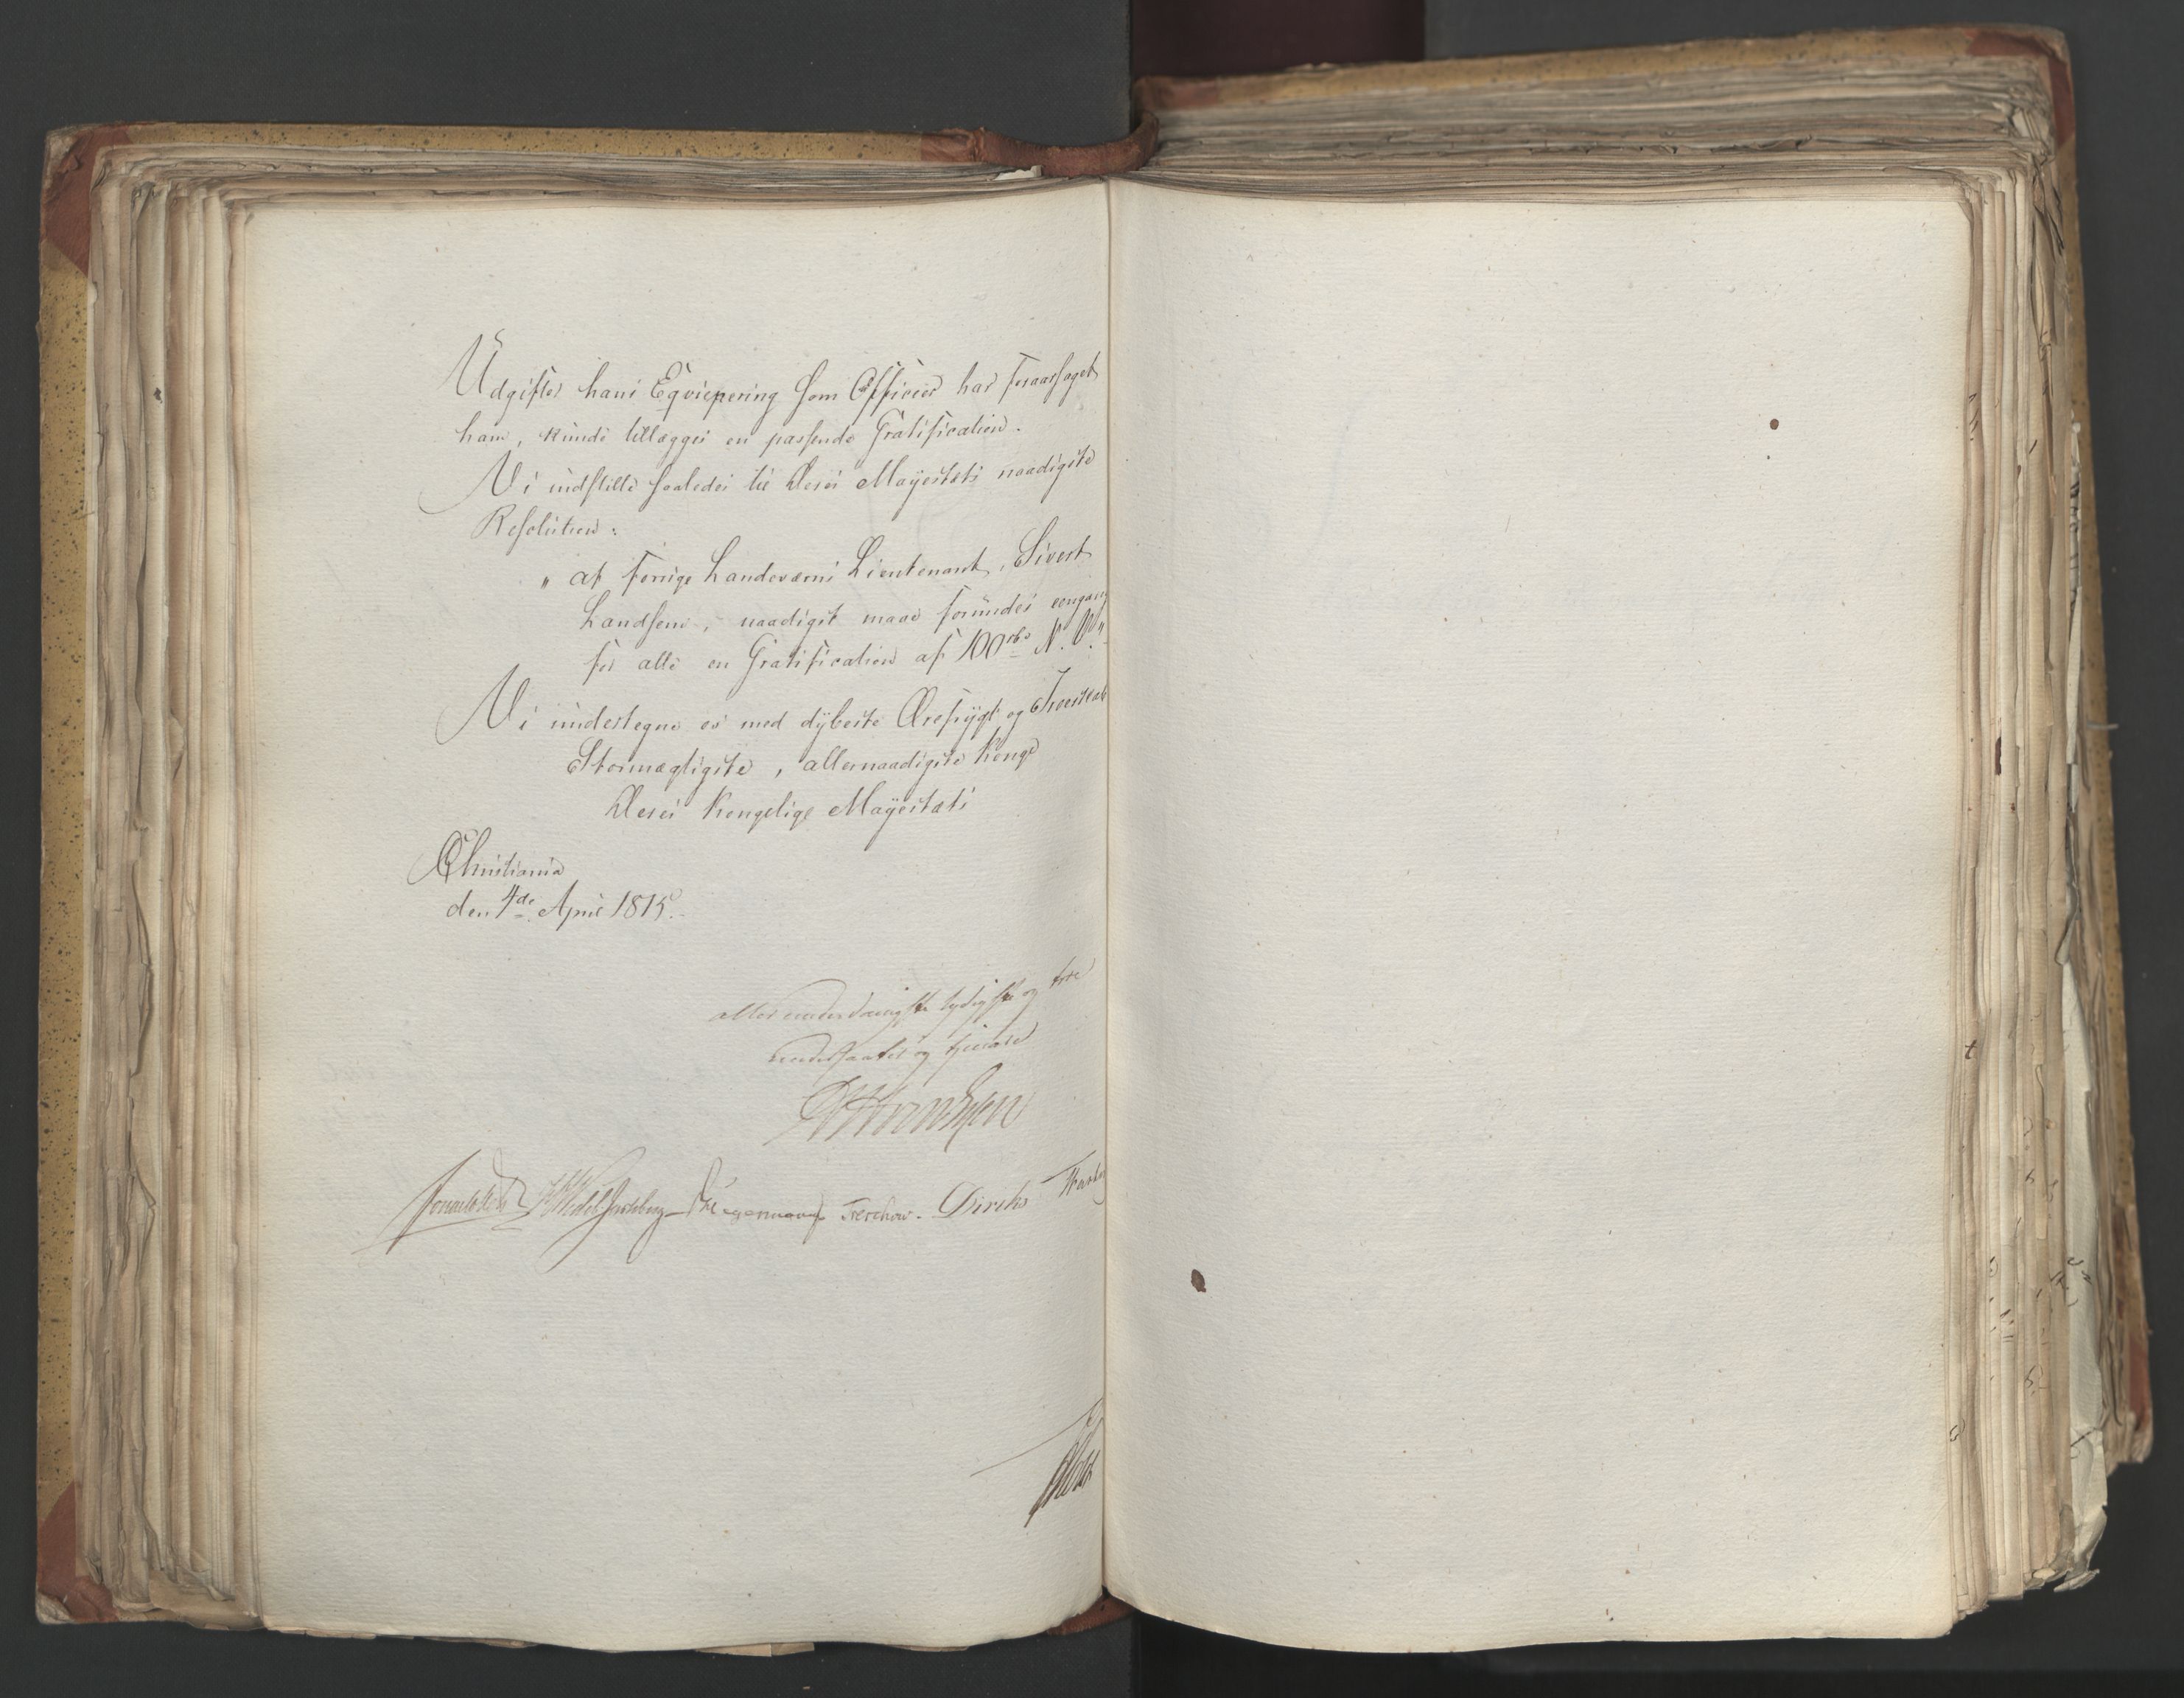 Udgifter hans Eqviepering som Officeer har foraarsaget
ham, kunde tillægges en passende Gratification.
Vi indstille saaledes til Deres Mayestæts naadigste
Resolution:
" at forrige Landeværns Lieutenant, Sivert
Landsem, naadigst maae forundes eengang
for alle en Gratification af 100 rbd N. V."
Vi undertegne os med dybeste Ærefrygt og Troeskab
Stormægtigste, allernaadigste Konge
Deres Kongelige Mayestæts
Christiania
den 4de April 1815.
allerunderdanigste lydigste og troe
undersaatter og tjenere
Sommerhielm Wedel Jarlsberg Krogh Treschow. Diriks
Holst